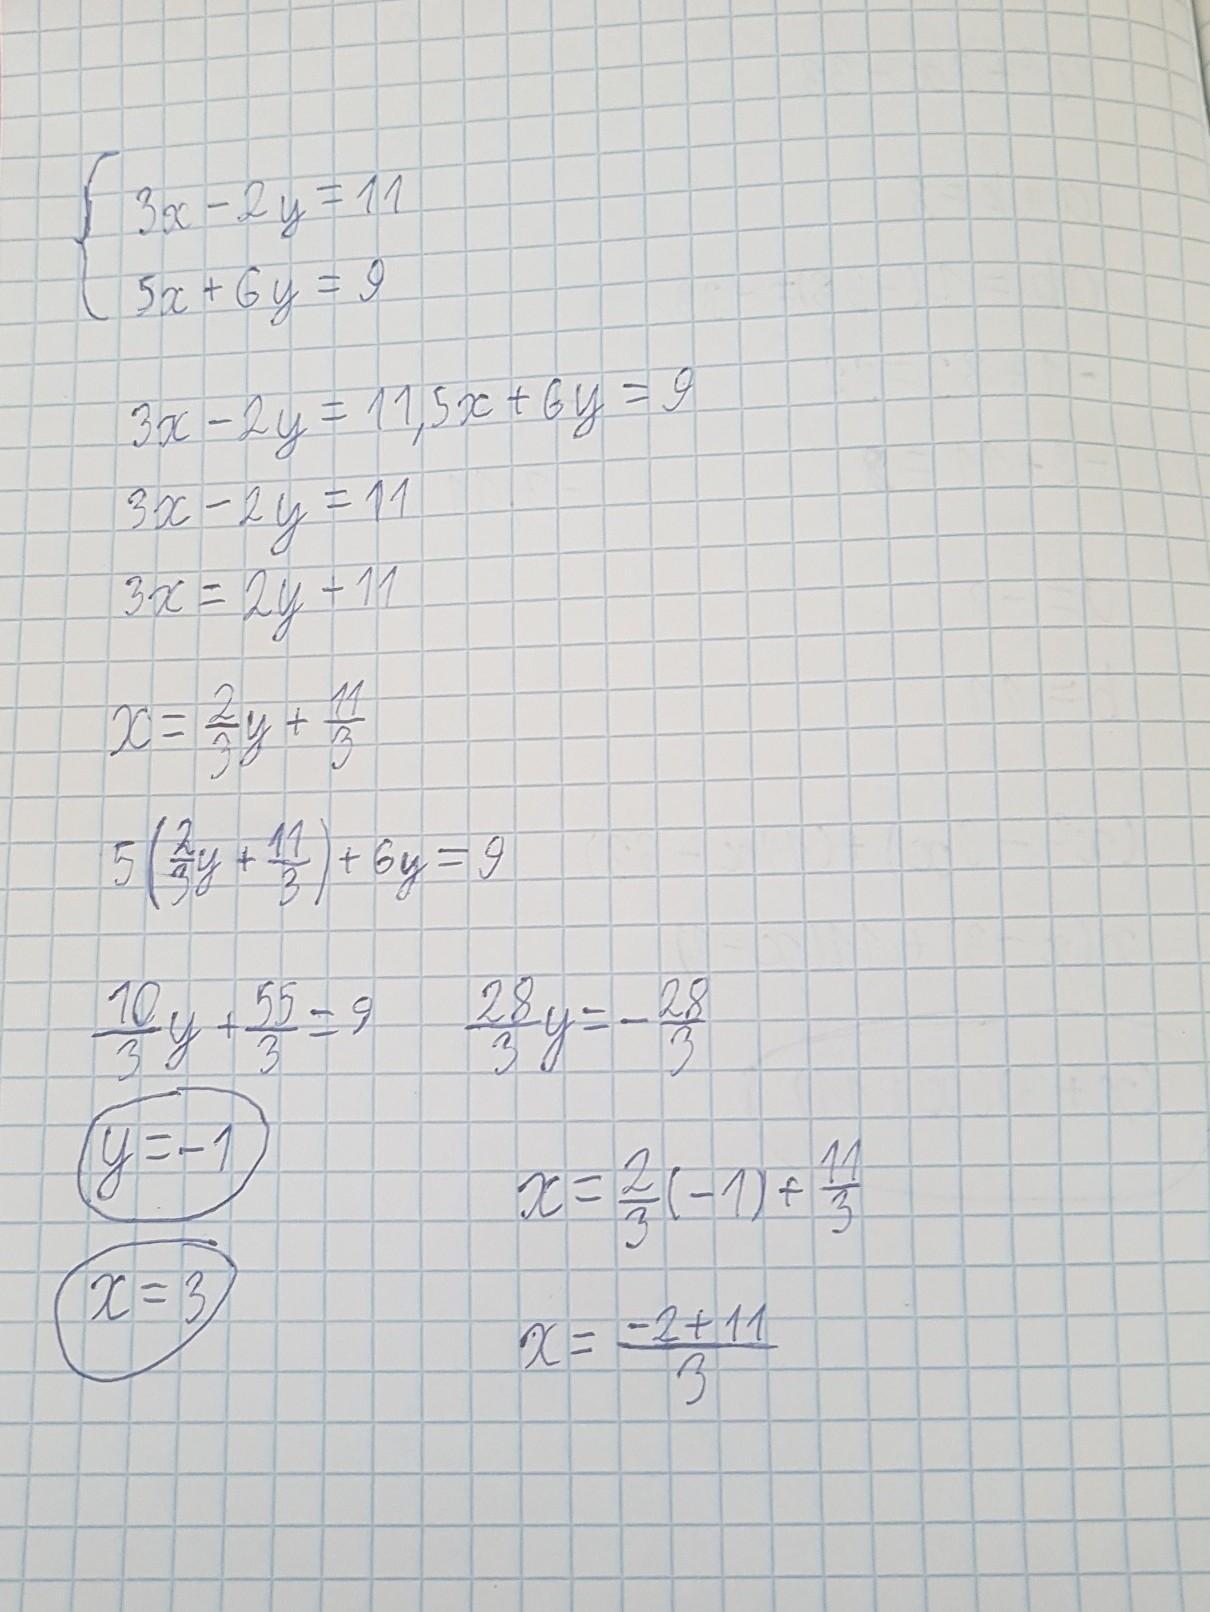 { 3x - 2y = 11
5x + 6y = 9
3x - 2y = 11, 5x + 6y = 9
3x - 2y = 11
3x = 2y + 11
x = 2/3 y + 11/3
5(2/3 y + 11/3) + 6y = 9
10/3 y + 55/3 = 9    28/3 y = - 28/3
y = -1
x = 2/3 (-1) + 11/3
x = 3
x = (-2 + 11)/3